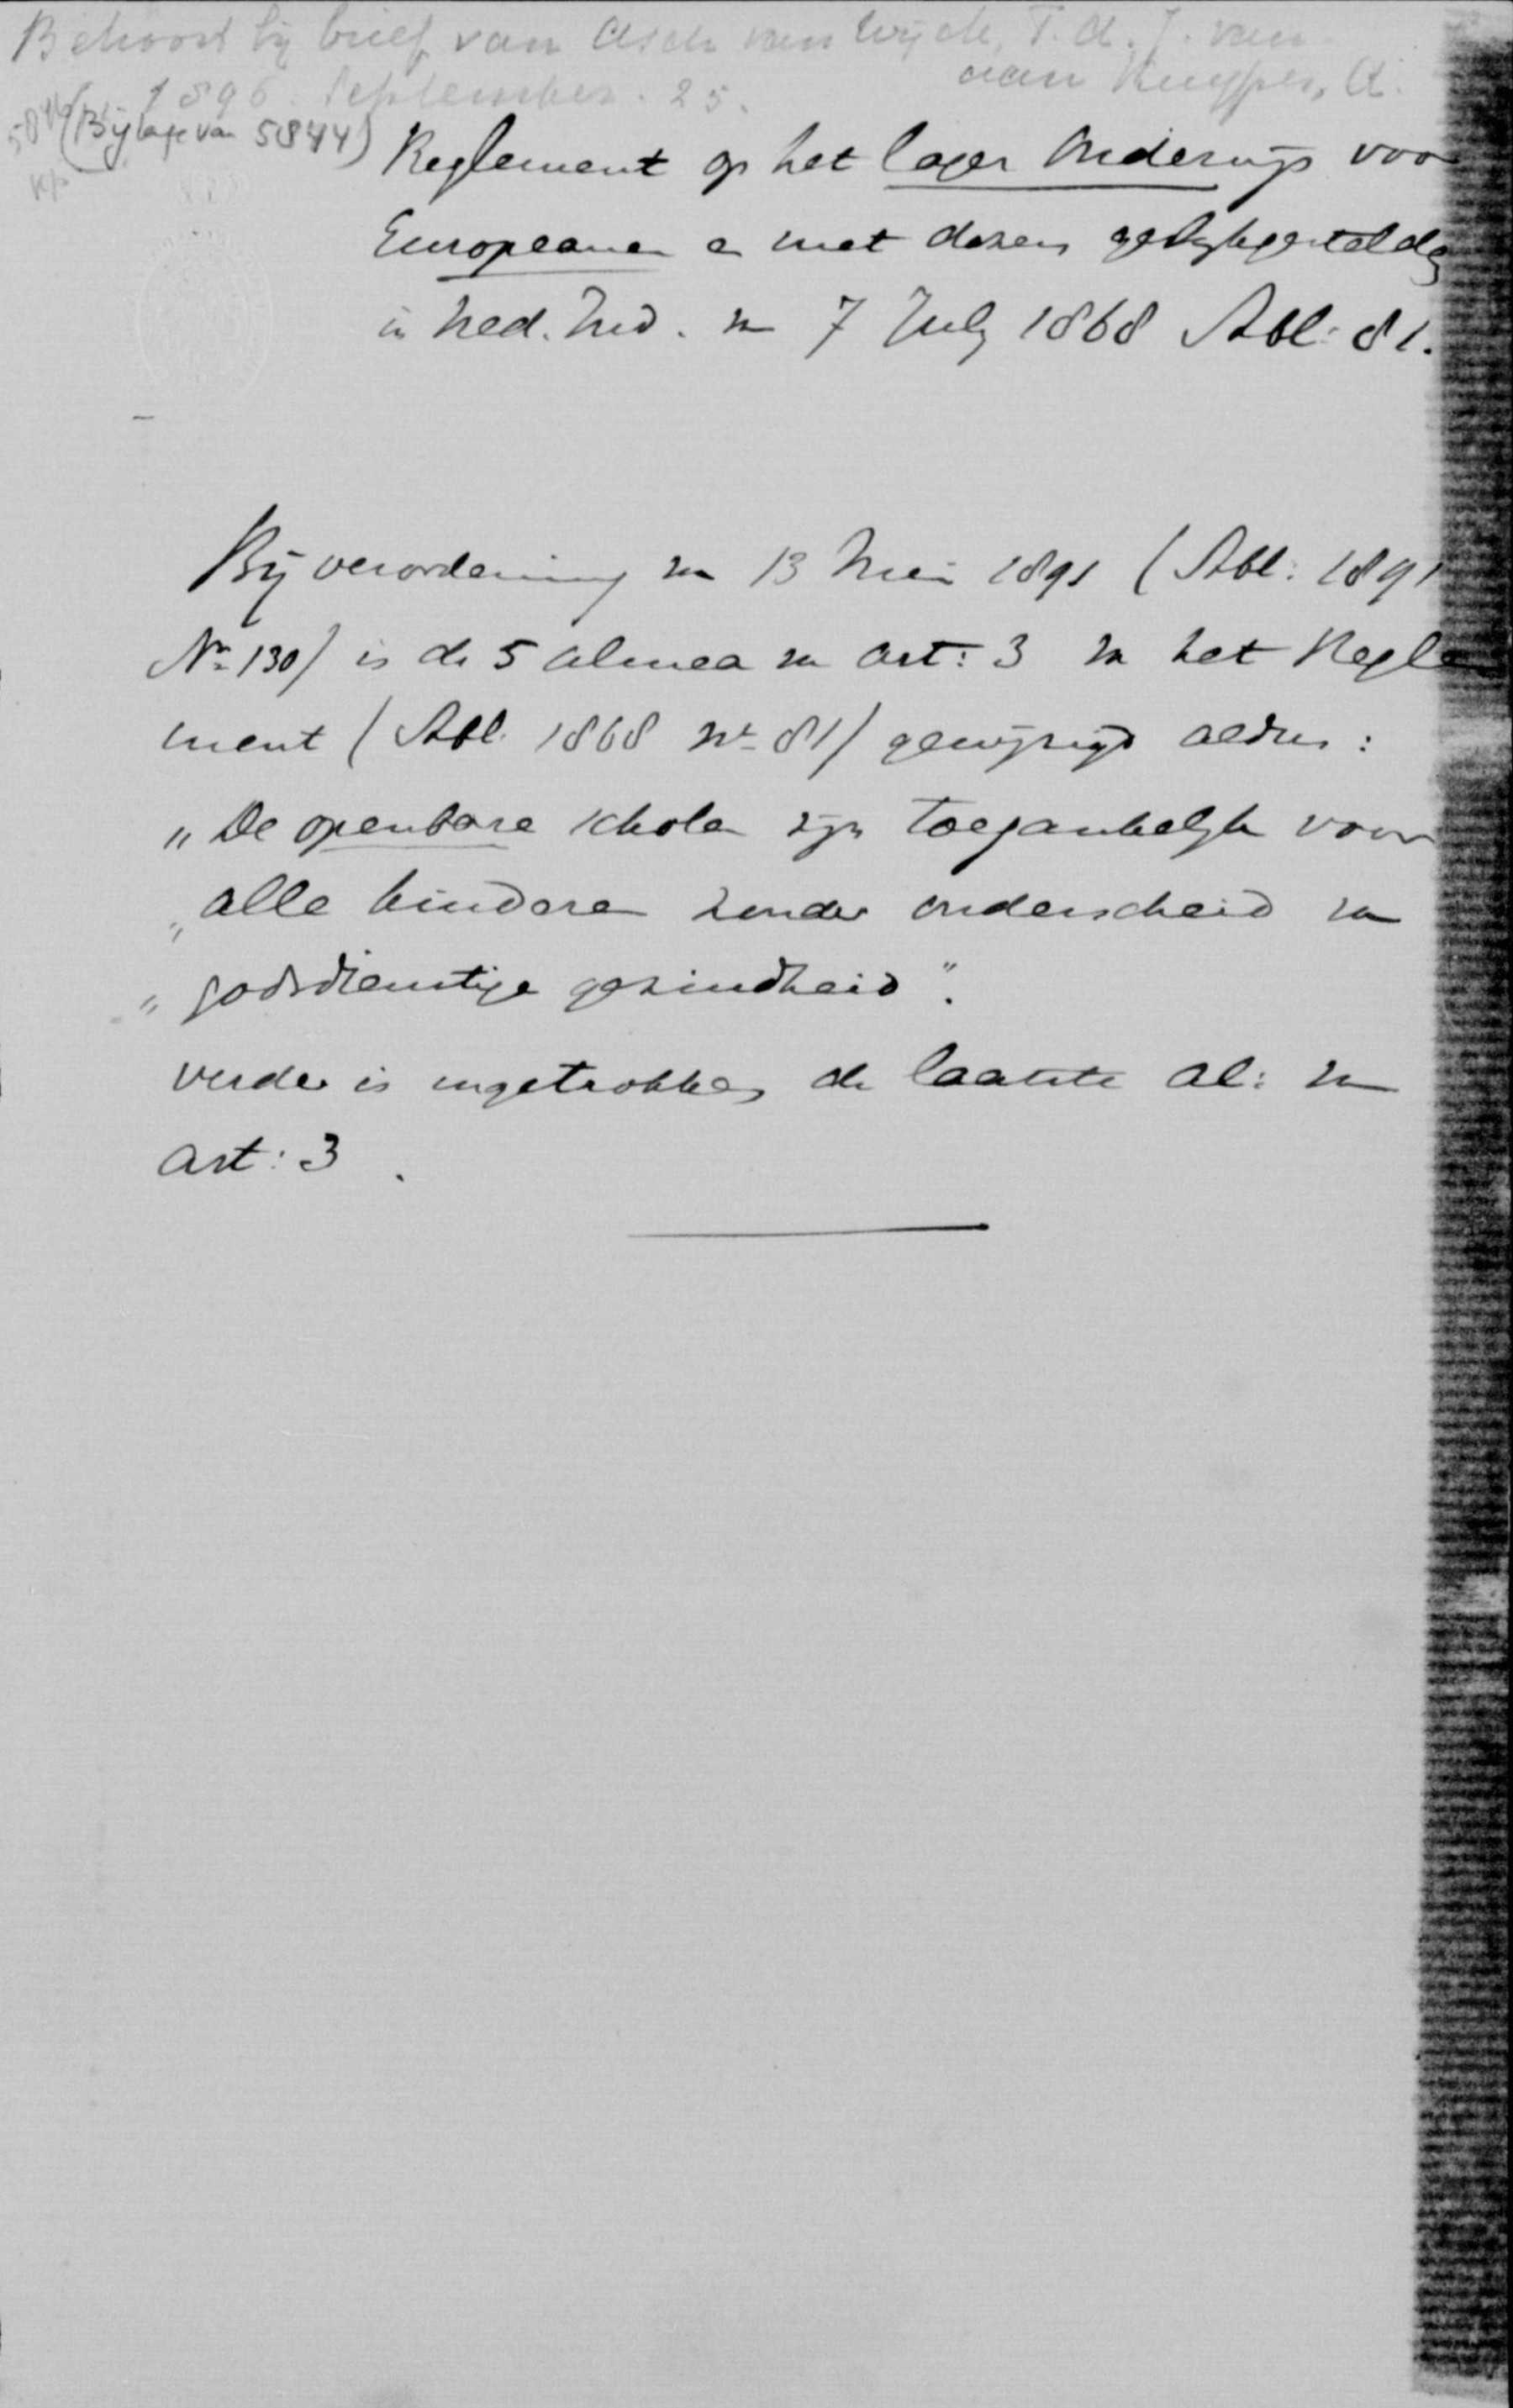 Behoort bij brief van Asch van Wijck, T. A. J. van
1896. September. 25. aan Kuyper, A.
(Bijlage van 5844)
Reglement op het lager Onderwijs voor
Europeanen en met dezen gelijkgestelden
in Ned. Ind. van 7 July 1868 Stbl: 81.
Bij verordening van 13 Mei 1891 (Stbl: 1891
No 130) is de 5 alinea van art: 3 van het Regle
ment (Stbl. 1868 No 81) gewijzigd aldus:
„De openbare scholen zijn toegankelijk voor
„alle kinderen zonder onderscheid van
„godsdienstige gezindheid".
verder is ingetrokken de laatste al: van
art: 3.